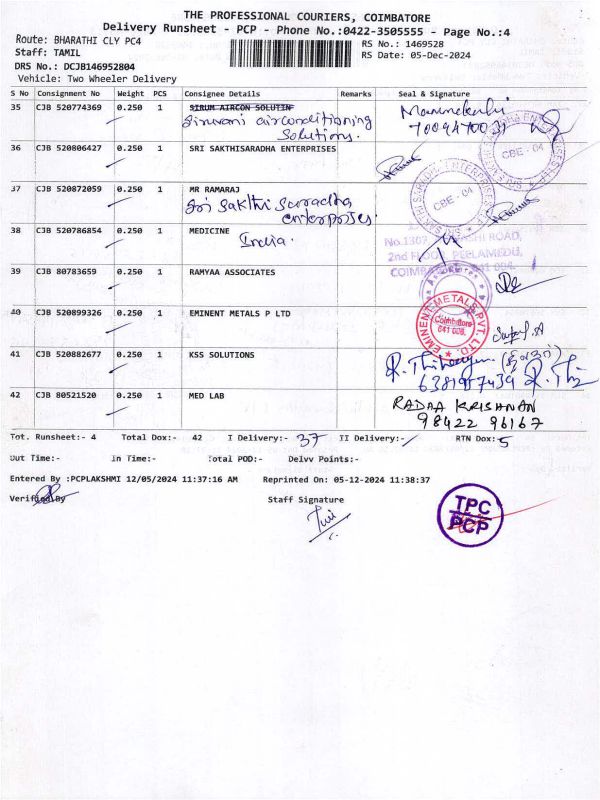 THE PROFESSIONAL COURIERS, COIMBATORE
Delivery Runsheet - PCP - Phone No.:0422-3505555 - Page No.:4
Route: BHARATHI CLY PC4
RS No.: 1469528
Staff: TAMIL
RS Date: 05-Dec-2024
DRS No.: DCJB146952804
Vehicle: Two Wheeler Delivery
S No Consignment No Weight PCS Consignee Details Remarks Seal & Signature
35 CJB 520774369 0.250 1 SIRUM AIRCON SOLUTIN
Siruvani airconditioning
Solutions.
7009470037
36 CJB 520806427 0.250 1 SRI SAKTHISARADHA ENTERPRISES
CBE - 04
CBE - 04
37 CJB 520872059 0.250 1 MR RAMARAJ
Sri Sakthi Saradha
enterprises.
38 CJB 520786854 0.250 1 MEDICINE
India.
No.1307, ROAD,
2nd FLOOR, PEELAMEDU,
COIMBATORE - 641 004.
39 CJB 80783659 0.250 1 RAMYAA ASSOCIATES
40 CJB 520899326 0.250 1 EMINENT METALS P LTD
EMINENT METALS PVT. LTD.
Coimbatore
641 006.
41 CJB 520882677 0.250 1 KSS SOLUTIONS
6381957439
42 CJB 80521520 0.250 1 MED LAB
RADAA KRISHNAN
98422 96167
Tot. Runsheet:- 4 Total Dox:- 42 I Delivery:- 37 II Delivery:- RTN Dox: 5
Out Time:- In Time:- Total POD:- Delvv Points:-
Entered By :PCPLAKSHMI 12/05/2024 11:37:16 AM Reprinted On: 05-12-2024 11:38:37
Verified By
Staff Signature
TPC
PCP